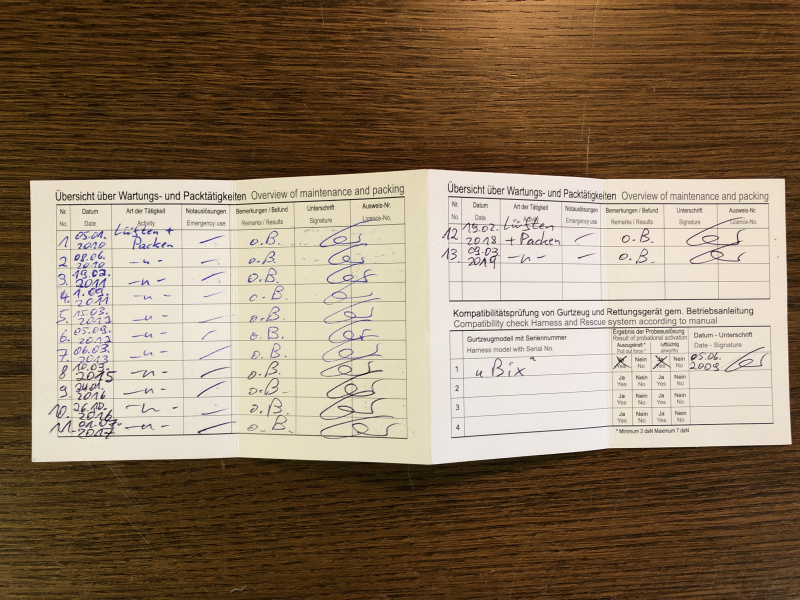 Übersicht über Wartungs- und Packtätigkeiten Overview of maintenance and packing
Nr. Datum Art der Tätigkeit Notauslösungen Bemerkungen / Befund Unterschrift Ausweis-Nr.
No. Date Activity Emergency use Remarks / Results Signature Licence-No.
1 05.01. 2010 Lüften + Packen o.B.
2 08.06. 2010 -"- o.B.
3. 19.02. 2011 -"- o.B.
4. 1.09. 2011 -"- o.B.
5. 15.03. -"- o.B.
6. 05.09. 2012 -"- o.B.
7. 06.03. 2013 -"- o.B.
8 10.03. 2015 -"- o.B.
9. 2016 -"- o.B.
10. 26.10. 2016 -"- o.B.
11. 01.07. 2017 -"- o.B.
Übersicht über Wartungs- und Packtätigkeiten Overview of maintenance and packing
Nr. Datum Art der Tätigkeit Notauslösungen Bemerkungen / Befund Unterschrift Ausweis-Nr.
No. Date Activity Emergency use Remarks / Results Signature Licence-No.
12 19.02. 2018 Lüften + Packen o.B.
13. 09.03 2019 -"- o.B.
Kompatibilitätsprüfung von Gurtzeug und Rettungsgerät gem. Betriebsanleitung
Compatibility check Harness and Rescue system according to manual
Gurtzeugmodell mit Seriennummer
Harness model with Serial No.
Ergebnis der Probeauslösung
Result of probational activation
Auszugskraft * lufttüchtig
Pull out force * airworthy
Datum - Unterschrift
Date - Signature
1 uBix Ja Nein Ja Nein 05.06. 2009
Yes No Yes No
2 Ja Nein Ja Nein
Yes No Yes No
3 Ja Nein Ja Nein
Yes No Yes No
4 Ja Nein Ja Nein
Yes No Yes No
* Minimum 2 daN Maximum 7 daN